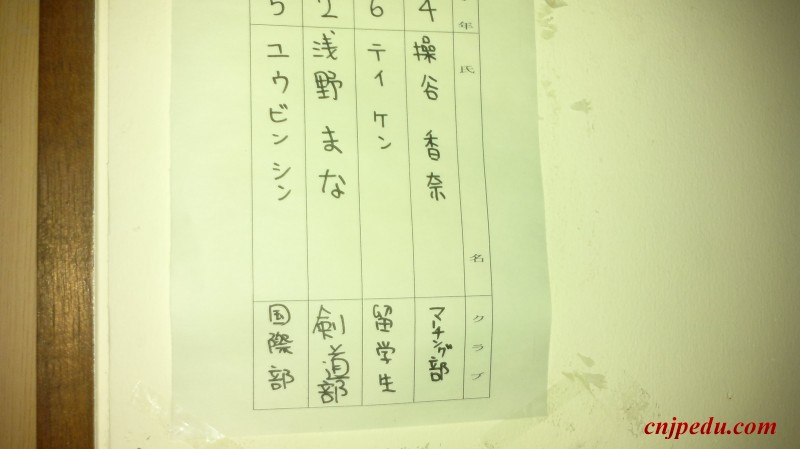 年 氏名 クラブ
4 操谷 香奈 マーチング部
6 テイ ケン 留学生
2 浅野 まな 剣道部
5 ユウビン シン 国際部
cnjpedu.com